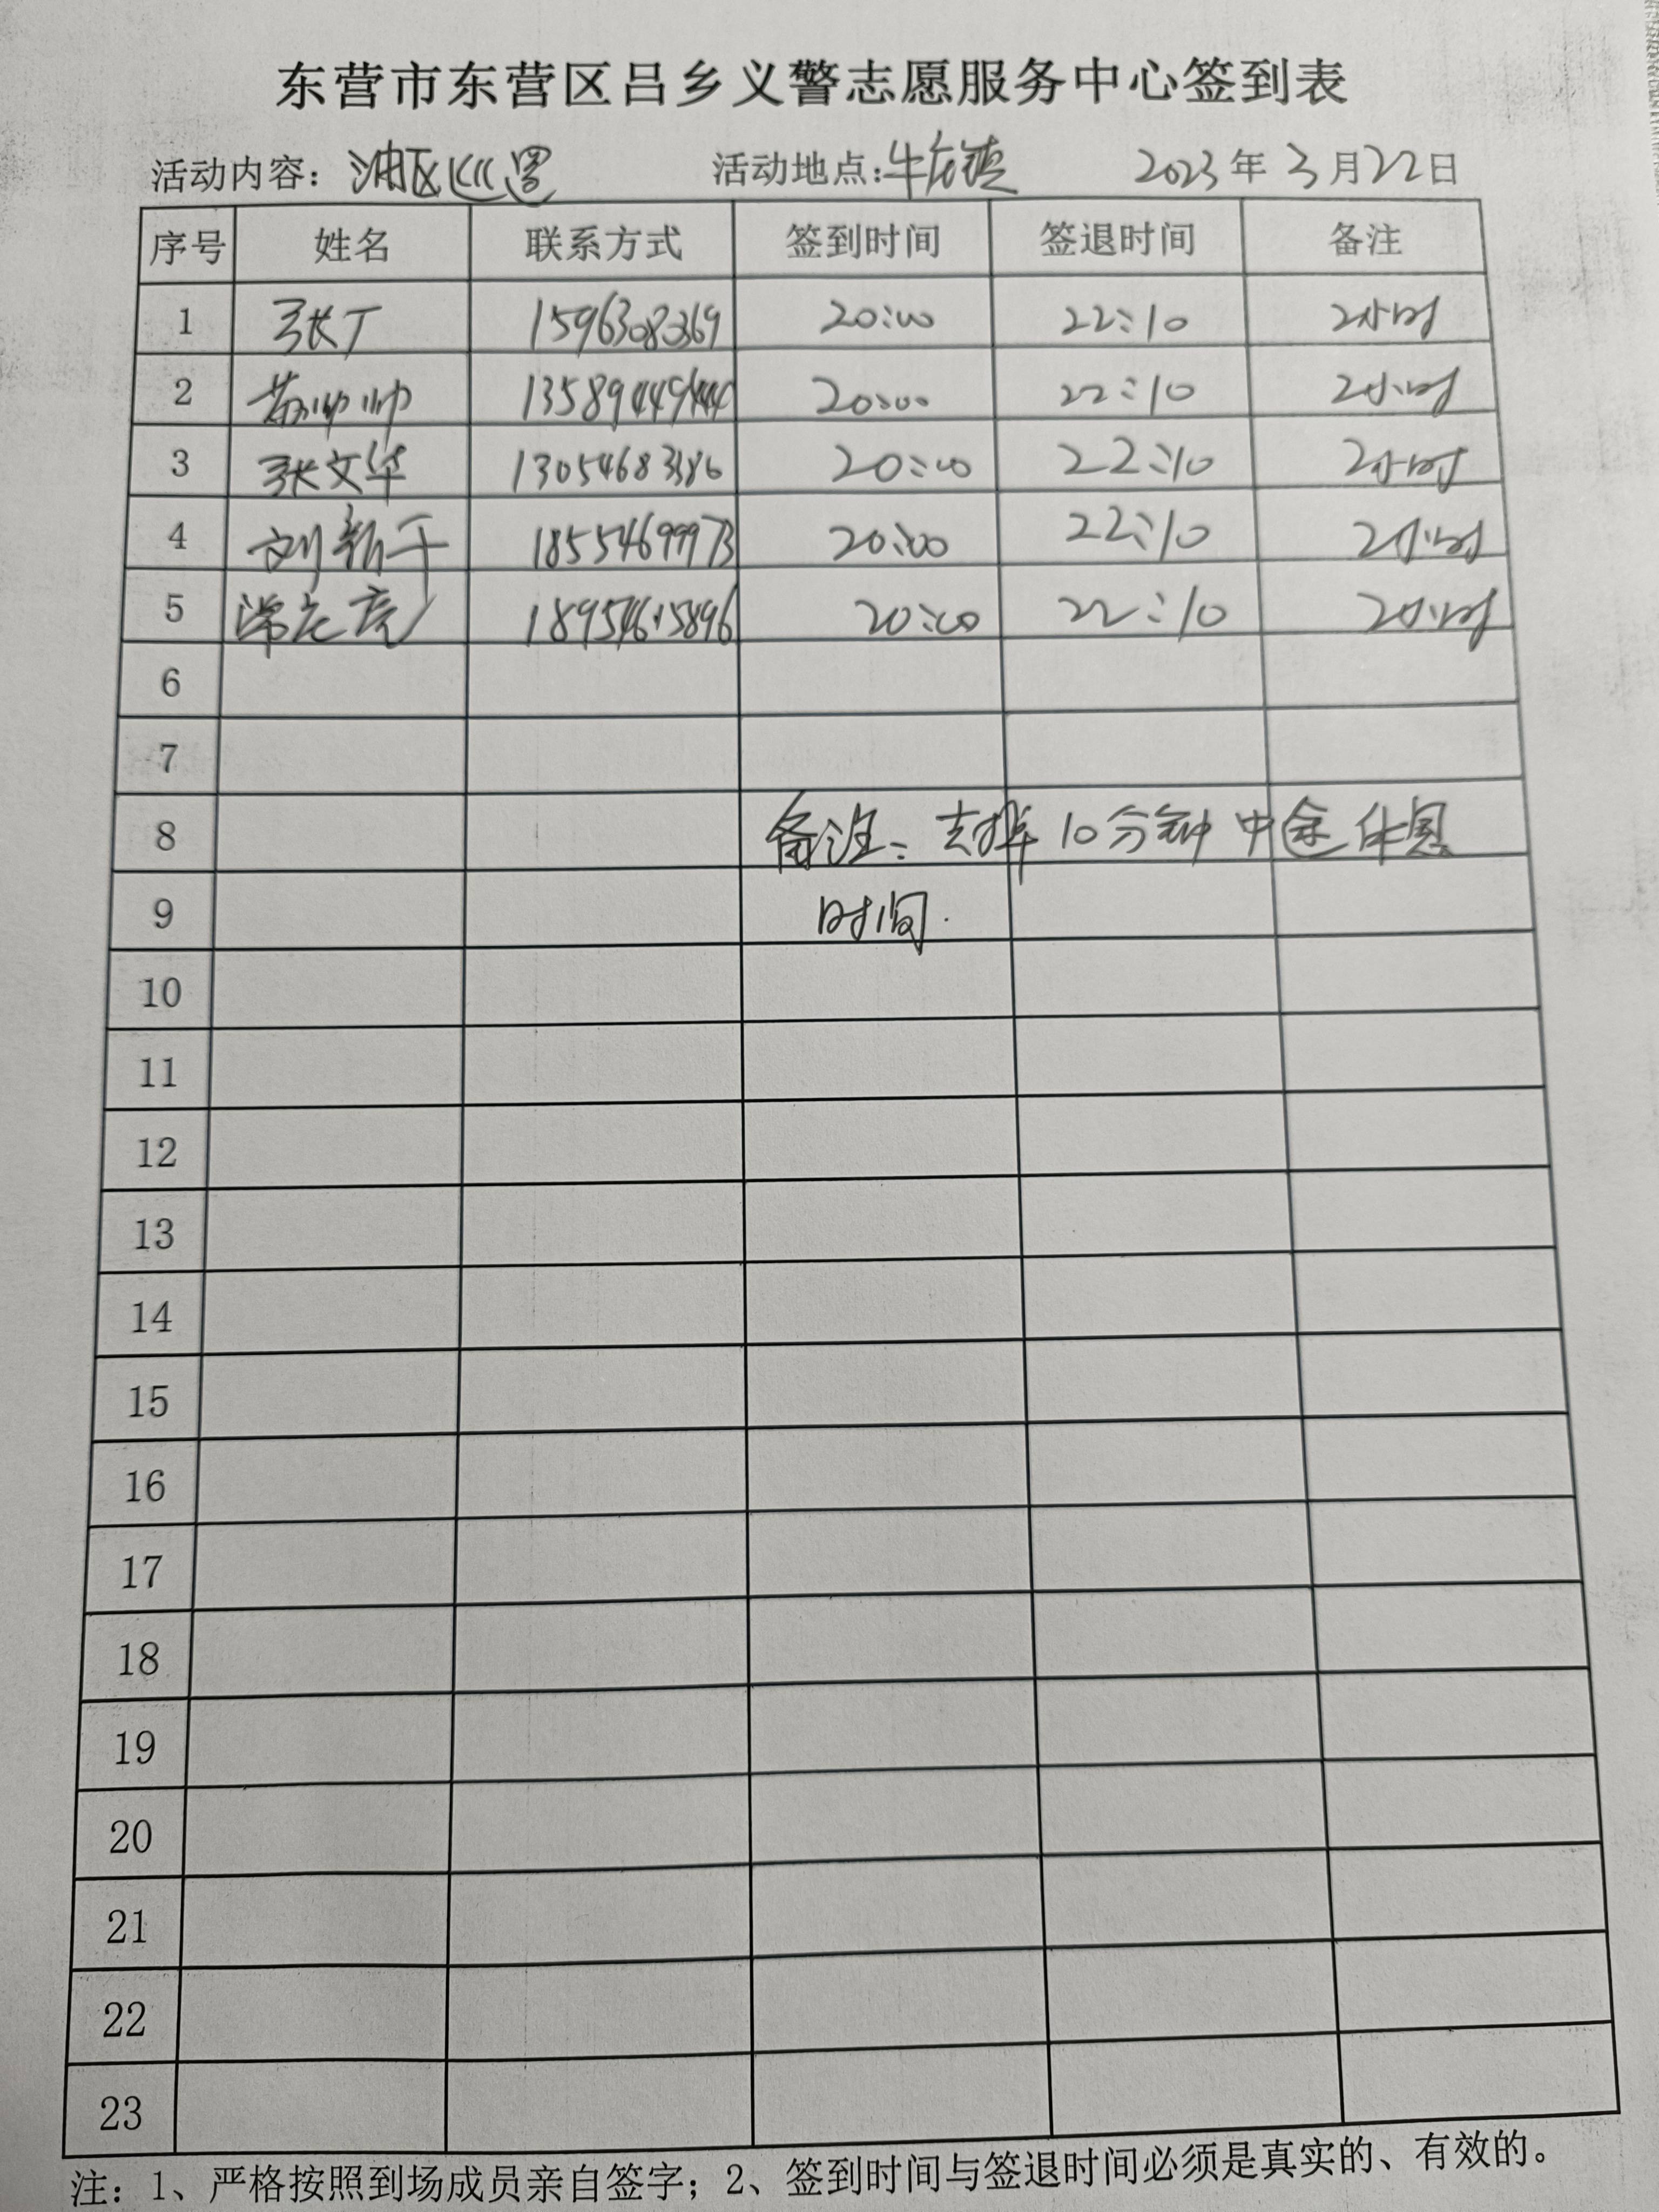 东营市东营区吕乡义警志愿服务中心签到表
活动内容：油区巡逻 活动地点：牛庄镇 2023年3月22日
序号 姓名 联系方式 签到时间 签退时间 备注
1 张丁 15963083369 20:00 22:10 2小时
2 帅帅 13589449444 20:00 22:10 2小时
3 张文华 13054683386 20:00 22:10 2小时
4 刘新千 18554699973 20:00 22:10 2小时
5 亮 18954615896 20:00 22:10 2小时
6
7
8 备注：去掉10分钟中途休息
9 时间.
10
11
12
13
14
15
16
17
18
19
20
21
22
23
注：1、严格按照到场成员亲自签字；2、签到时间与签退时间必须是真实的、有效的。